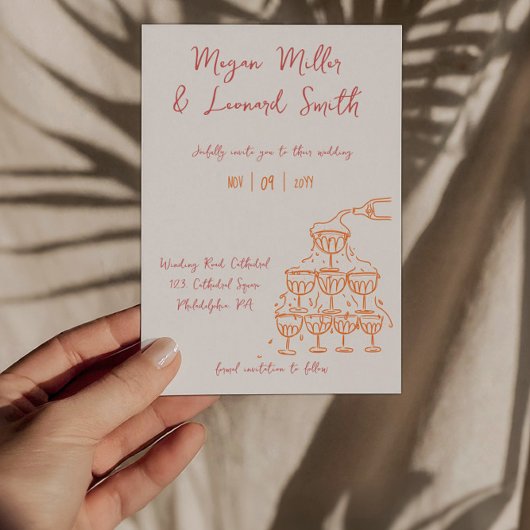 Megan Miller
& Leonard Smith
Joifully invite you to their wedding
NOV | 09 | 20YY
Winding Road Cathedral
123 Cathedral Square
Philadelphia PA
formal invitation to follow